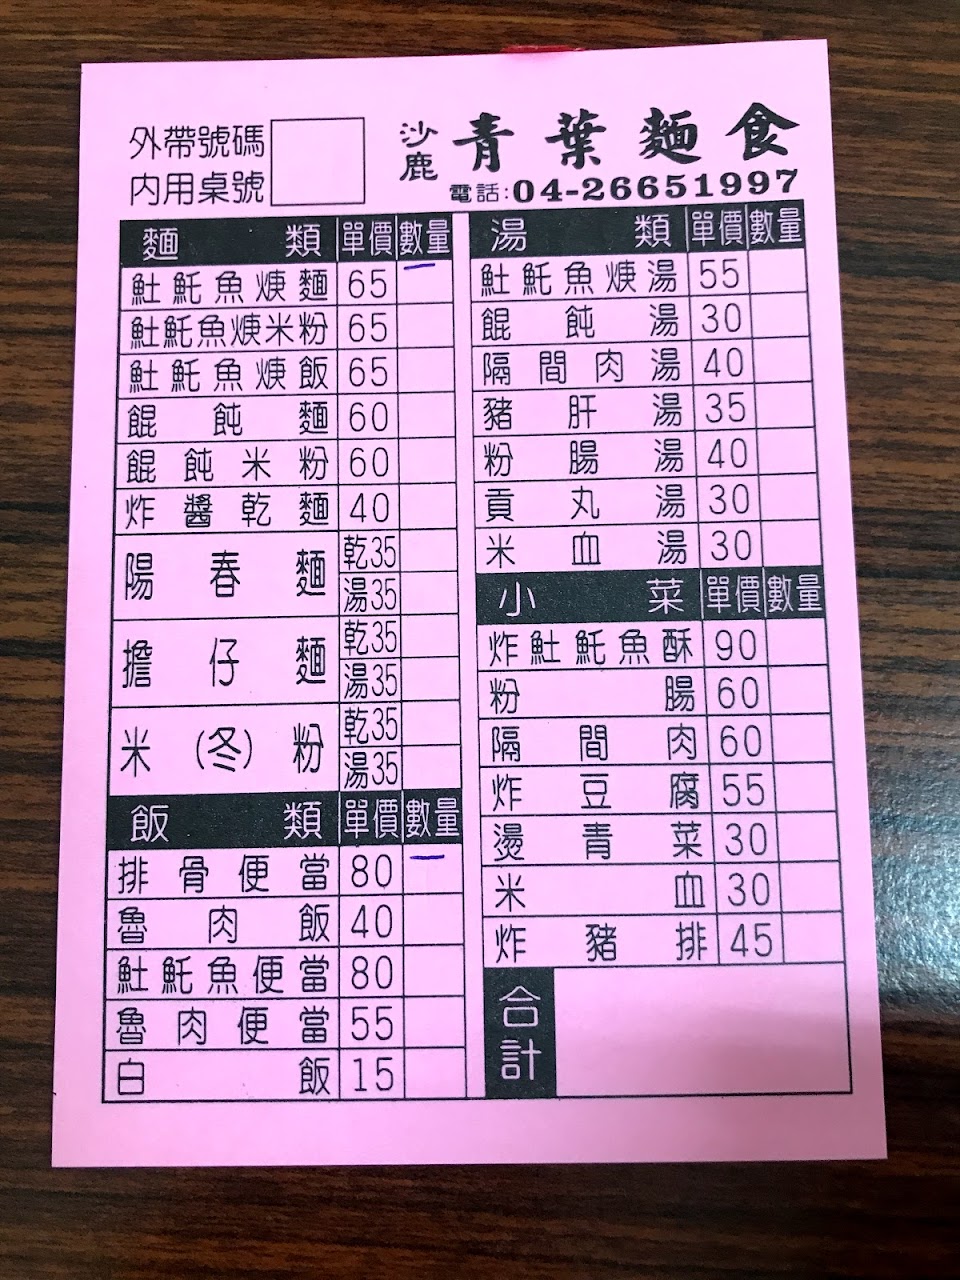 外帶號碼
內用桌號
沙鹿 青葉麵食
電話:04-26651997
麵類 單價 數量
魠魠魚焿麵 65
魠魠魚焿米粉 65
魠魠魚焿飯 65
餛飩麵 60
餛飩米粉 60
炸醬乾麵 40
陽春麵 乾35
湯35
擔仔麵 乾35
湯35
米(冬)粉 乾35
湯35
飯類 單價 數量
排骨便當 80
魯肉飯 40
魠魠魚便當 80
魯肉便當 55
白飯 15
湯類 單價 數量
魠魠魚焿湯 55
餛飩湯 30
隔間肉湯 40
豬肝湯 35
粉腸湯 40
貢丸湯 30
米血湯 30
小菜 單價 數量
炸魠魠魚酥 90
粉腸 60
隔間肉 60
炸豆腐 55
燙青菜 30
米血 30
炸豬排 45
合計